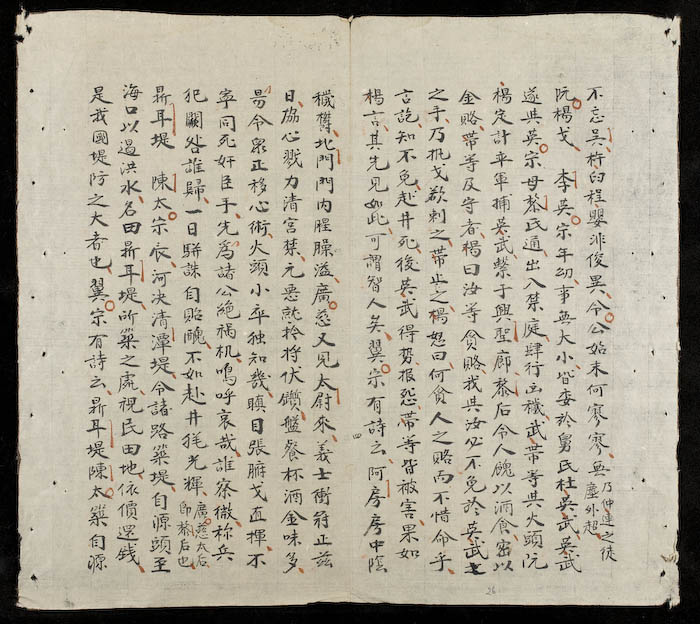 不忘吳杵臼程嬰非俊異令公始末何寥寥無乃仲連之徒塵外超
阮楊戈 李英宗年幼事無大小皆委於舅氏杜英武英武
遂與英宗母黎氏通出入禁庭肆行凶穢武帶等與火頭阮
楊定計率軍捕英武繫于興聖廊黎后令人餽以酒食密以
金賂帶等及守者楊曰汝等貪賂我與汝必不免於英武之
之手乃挑戈欲刺之帶止之楊怒曰何貪人之賂而不惜命乎
言訖知不免赴井死後英武得势报怨帶等皆被害果如
楊言其先見如此可謂智人矣翼宗有詩云阿房房中陰
穢舊北門門内腥臊溢廣慈又見太尉來義士衝冠正茲
日协心戮力清宮禁元惡就拎将伏鑕盤餐杯酒金味多
易令眾正移心術火頭小卒獨知幾瞋目張髯戈直揮不
寧同死奸臣手先為諸公絕禍机嗚呼哀哉誰察徵称兵
犯闕咎誰歸一日駢誅自貽醜不如赴井光輝廣慈太后即黎后也
鼎耳堤 陳太宗辰河决清潭堤令諸路築堤自源頭至
海口以遏洪水名曰鼎耳堤所築之處視民田地依價還錢
是我國堤防之大者也翼宗有詩云鼎耳堤陳太築自源
26